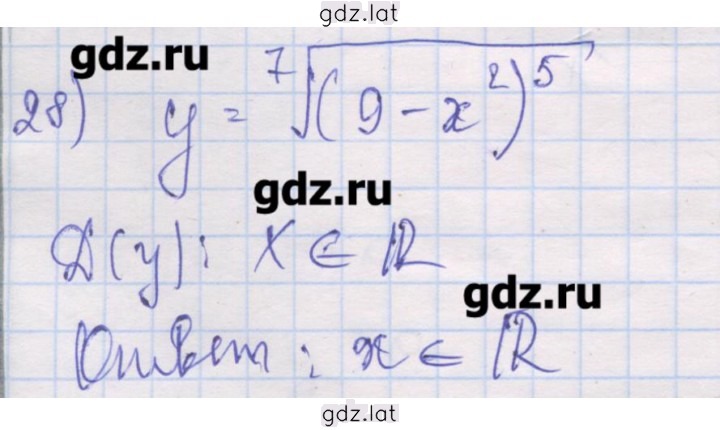 gdz.lat
gdz.ru
28) y = ⁷√(9 - x²)⁵
gdz.ru
D(y): x ∈ ℝ
gdz.ru
Ответ: x ∈ ℝ
gdz.lat